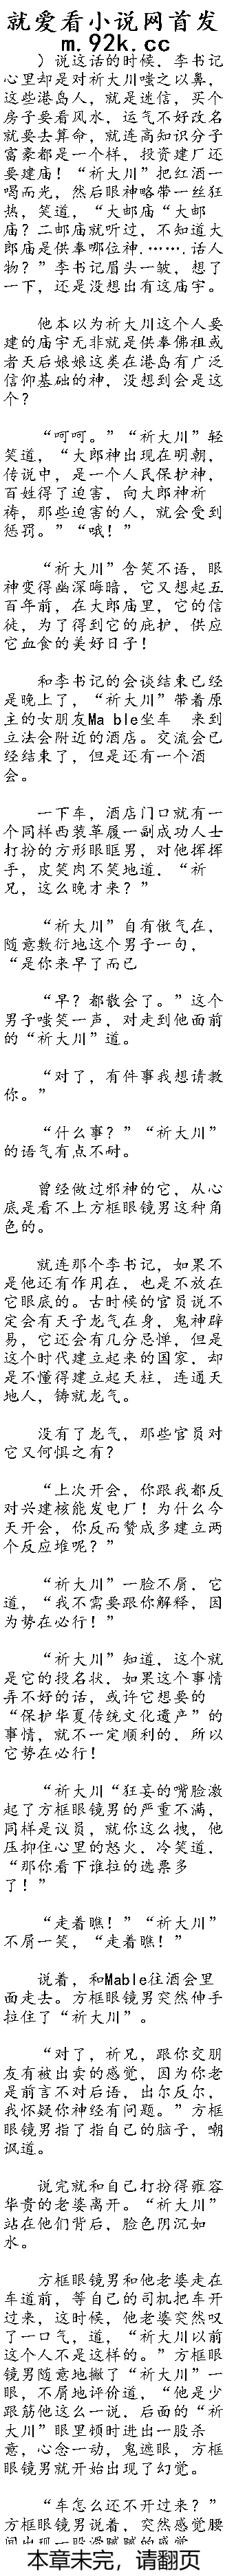 就爱看小说网首发
m.92k.cc
）说这话的时候，李书记
心里却是对祈大川嗤之以鼻，
这些港岛人，就是迷信，买个
房子要看风水，运气不好改名
就要去算命，就连高知识分子
富豪都是一个样，投资建厂还
要建庙！“祈大川”把红酒一
喝而光，然后眼神略带一丝狂
热，笑道，“大邮庙“大邮
庙？二邮庙就听过，不知道大
郎庙是供奉哪位神.…….话人
物？”李书记眉头一皱，想了
一下，还是没想出有这庙宇。
他本以为祈大川这个人要
建的庙宇无非就是供奉佛祖或
者天后娘娘这类在港岛有广泛
信仰基础的神，没想到会是这
个？
“呵呵。”“祈大川”轻
笑道，“大郎神出现在明朝，
传说中，是一个人民保护神，
百姓得了迫害，向大郎神祈
祷，那些迫害的人，就会受到
惩罚。”“哦！”
“祈大川”含笑不语，眼
神变得幽深晦暗，它又想起五
百年前，在大郎庙里，它的信
徒，为了得到它的庇护，供应
它血食的美好日子！
和李书记的会谈结束已经
是晚上了，“祈大川”带着原
主的女朋友Ma ble坐车　来到
立法会附近的酒店。交流会已
经结束了，但是还有一个酒
会。
一下车，酒店门口就有一
个同样西装革履一副成功人士
打扮的方形眼眶男，对他挥挥
手，皮笑肉不笑地道，“祈
兄，这么晚才来？”
“祈大川”自有傲气在，
随意敷衍地这个男子一句，
“是你来早了而已
“早？都散会了。”这个
男子嗤笑一声，对走到他面前
的“祈大川”道。
“对了，有件事我想请教
你。”
“什么事？”“祈大川”
的语气有点不耐。
曾经做过邪神的它，从心
底是看不上方框眼镜男这种角
色的。
就连那个李书记，如果不
是他还有作用在，也是不放在
它眼底的。古时候的官员说不
定会有天子龙气在身，鬼神辟
易，它还会有几分忌惮，但是
这个时代建立起来的国家，却
是不懂得建立起天柱，连通天
地人，铸就龙气。
没有了龙气，那些官员对
它又何惧之有？
“上次开会，你跟我都反
对兴建核能发电厂！为什么今
天开会，你反而赞成多建立两
个反应堆呢？”
“祈大川”一脸不屑，它
道，“我不需要跟你解释，因
为势在必行！”
“祈大川”知道，这个就
是它的投名状，如果这个事情
弄不好的话，或许它想要的
“保护华夏传统文化遗产”的
事情，就不一定顺利的，所以
它势在必行！
“祈大川“狂妄的嘴脸激
起了方框眼镜男的严重不满，
同样是议员，就你这么拽，他
压抑住心里的怒火，冷笑道，
“那你看下谁拉的选票多
了！”
“走着瞧！”“祈大川”
不屑一笑，“走着瞧！”
说着，和Mable往酒会里
面走去。方框眼镜男突然伸手
拉住了“祈大川”。
“对了，祈兄，跟你交朋
友有被出卖的感觉，因为你老
是前言不对后语，出尔反尔，
我怀疑你神经有问题。”方框
眼镜男指了指自己的脑子，嘲
讽道。
说完就和自己打扮得雍容
华贵的老婆离开。“祈大川”
站在他们背后，脸色阴沉如
水。
方框眼镜男和他老婆走在
车道前，等自己的司机把车开
过来，这时候，他老婆突然叹
了一口气，道，“祈大川以前
这个人不是这样的。”方框眼
镜男随意地撇了“祈大川”一
眼，不屑地评价道，“他是少
跟筋他这么一说，后面的“祈
大川”眼里顿时迸出一股杀
意，心念一动，鬼遮眼，方框
眼镜男就开始出现了幻觉。
“车怎么还不开过来？”
方框眼镜男说着，突然感觉腰
间出现一股滑腻腻的感觉
本章未完，请翻页